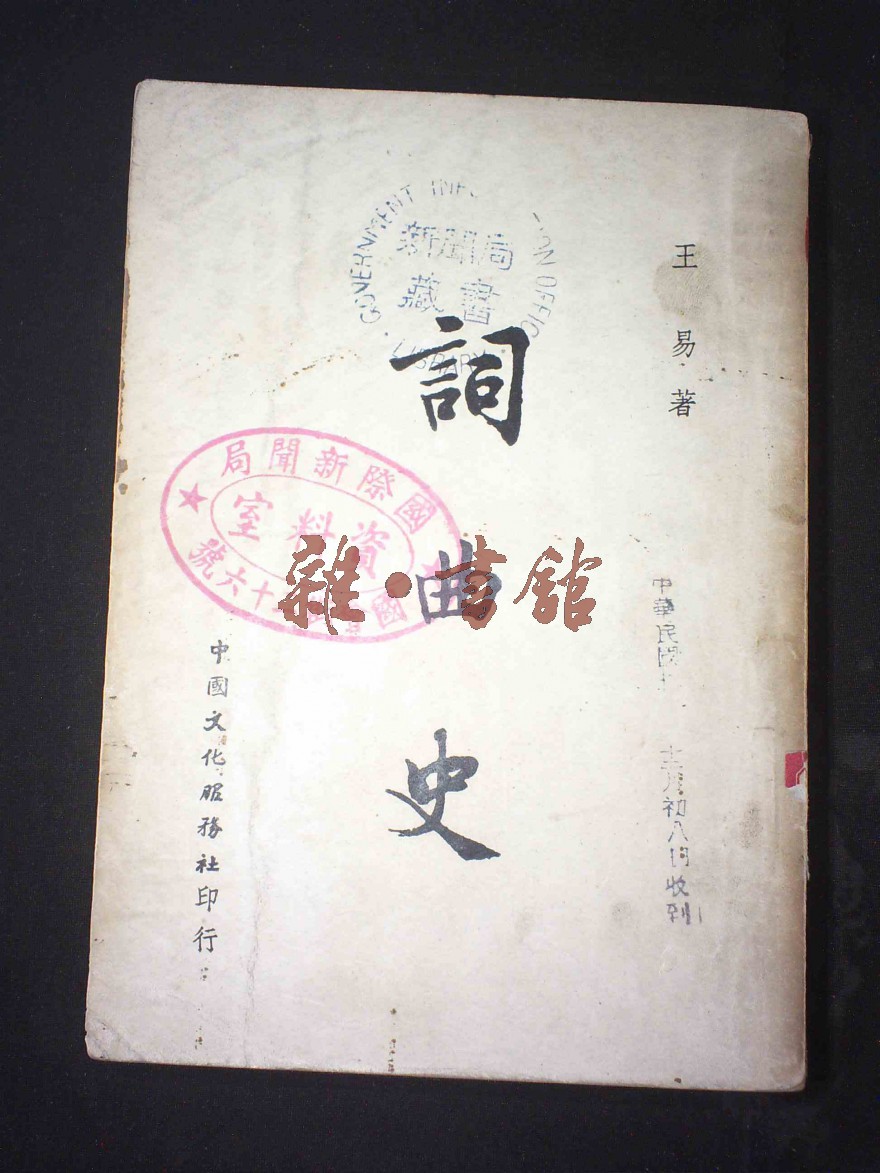 王易著
詞曲史
中國文化服務社印行
GOVERNMENT INF ION OFFIC
新聞局
藏書
LIBRARY
國際新聞局
資料室
號六十
雜·書館
中華民國
初八日收到